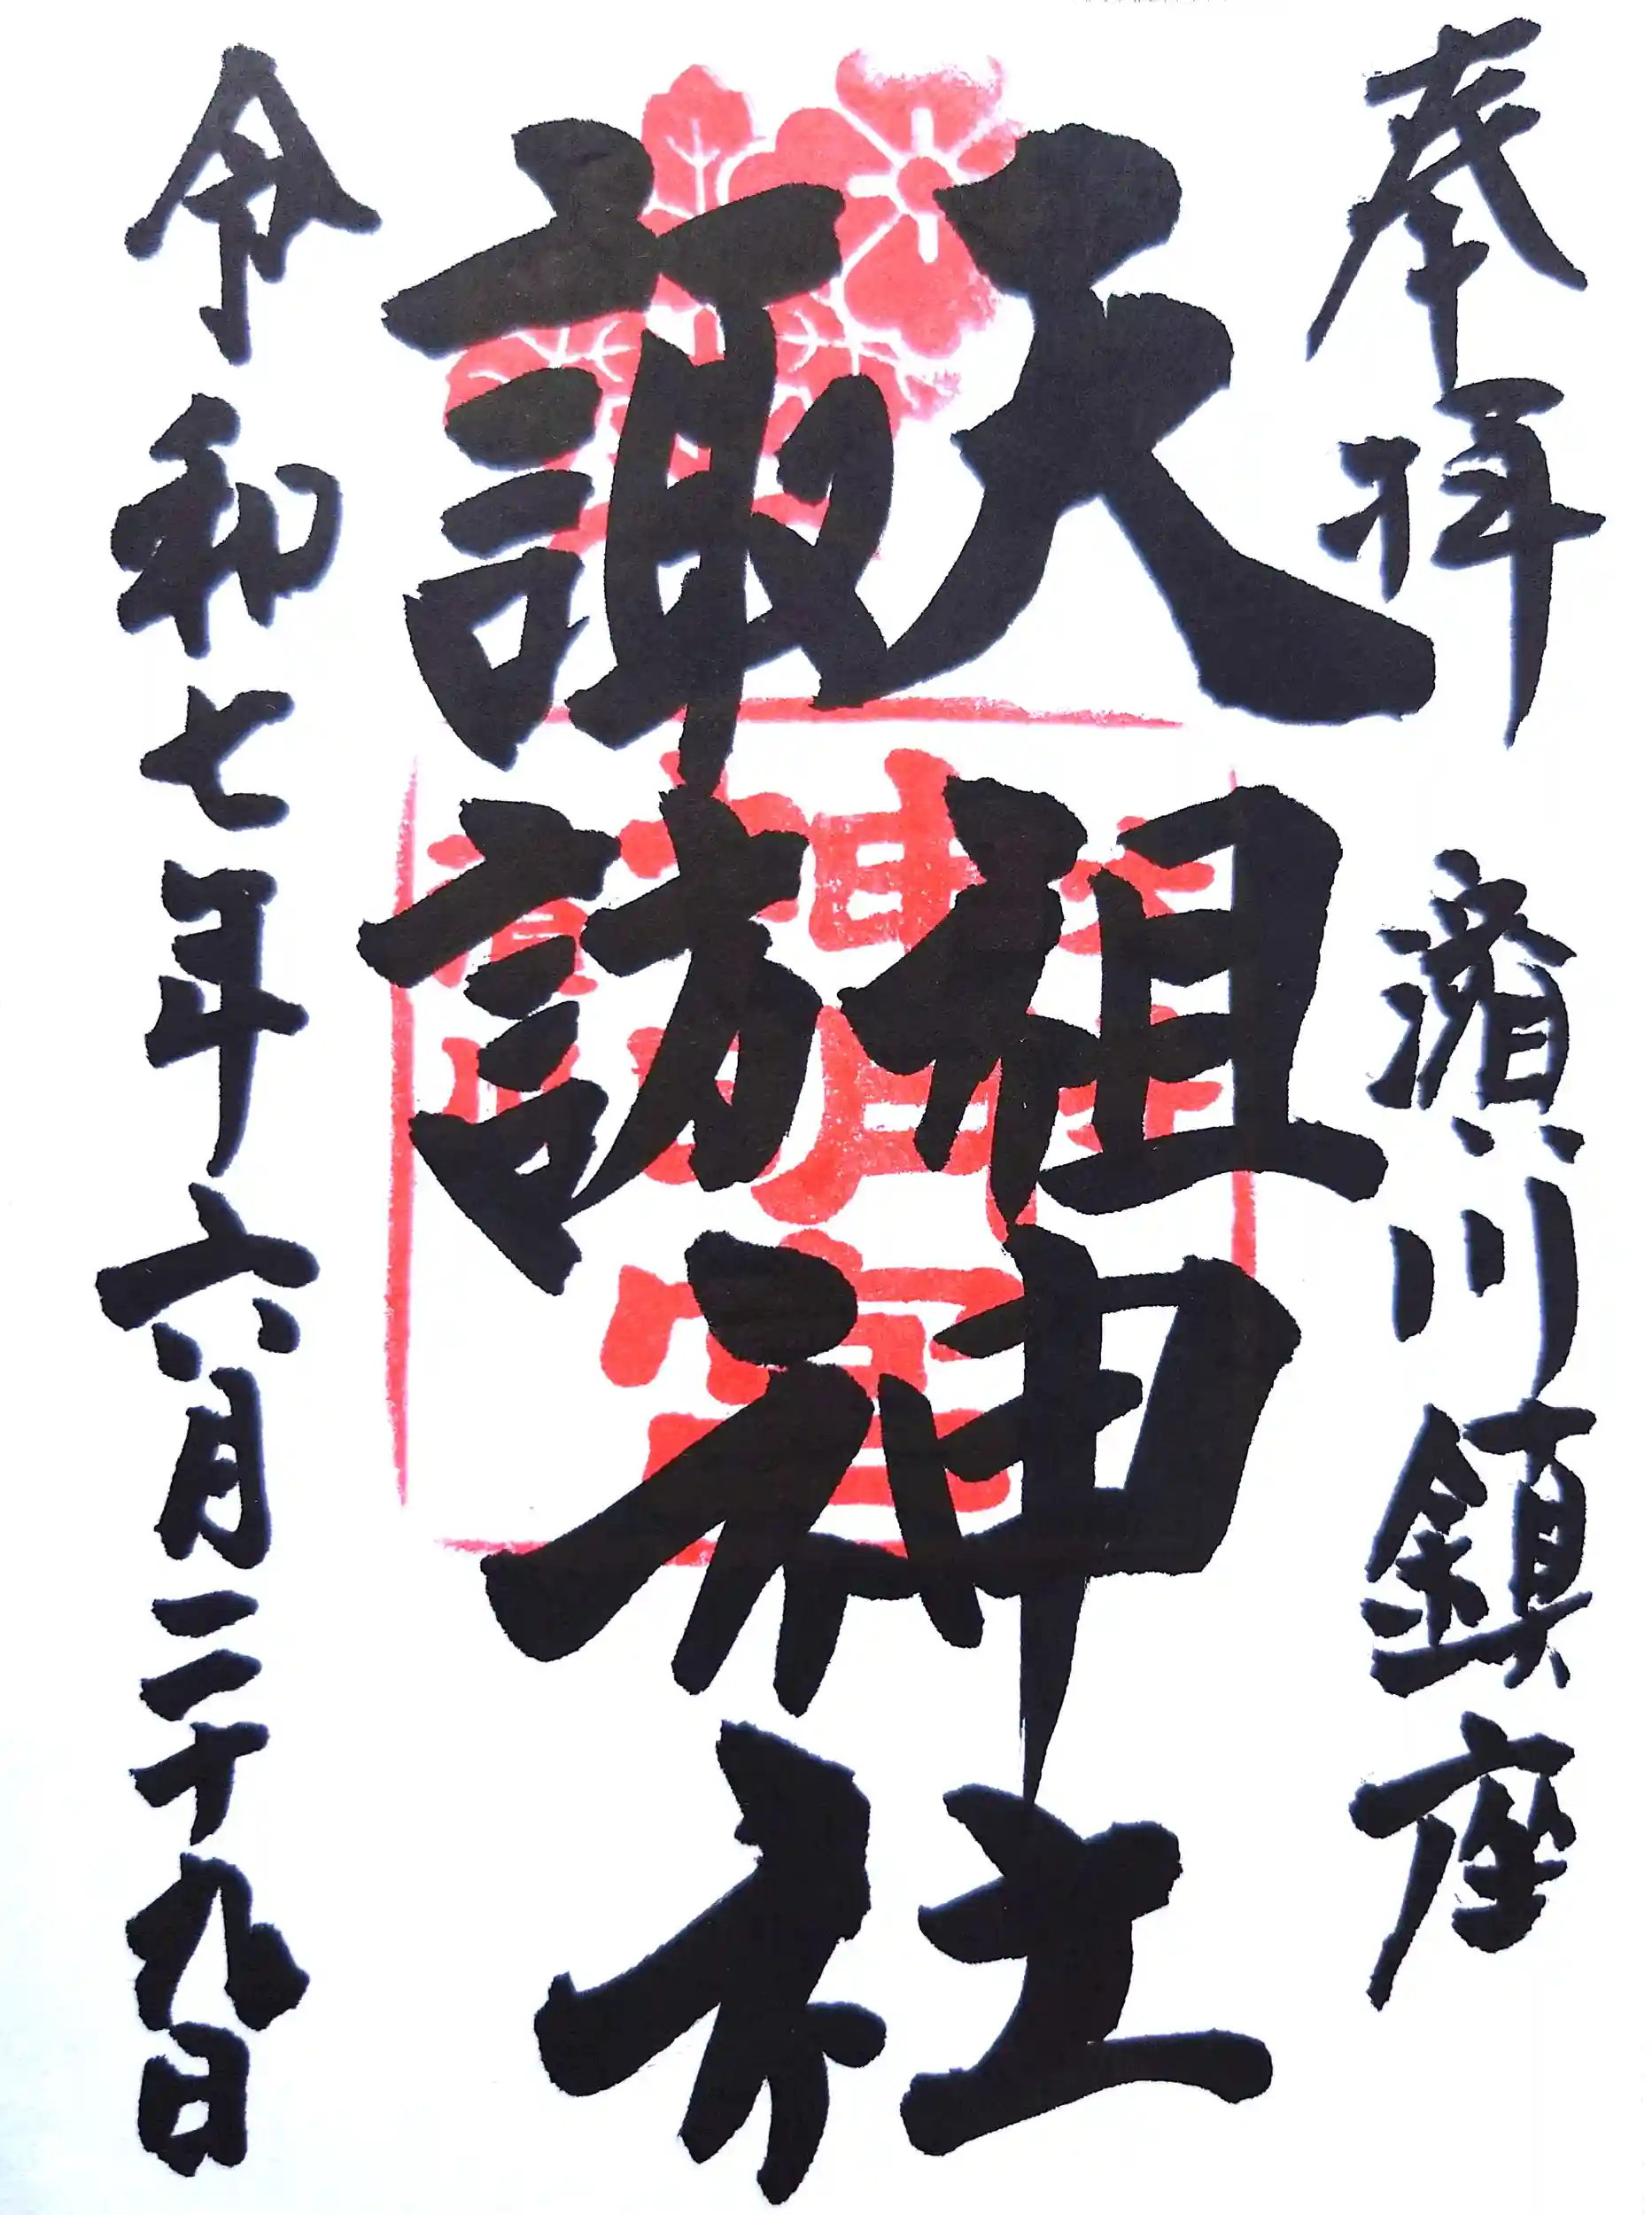 奉拝 濱川鎮座
天祖
諏訪
神社
令和七年六月二十九日
神明宮